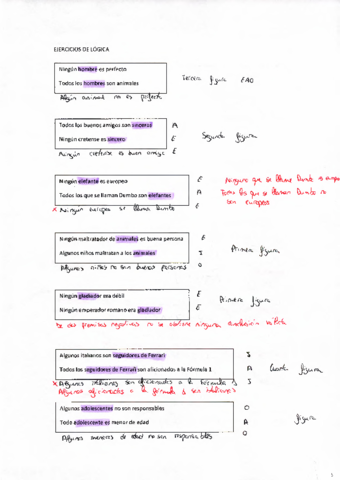 EJERCICIOS DE LÓGICA
Ningún hombre es perfecto
Todos los hombres son animales
Tercera figura EAO
Algún animal no es perfecto
Todos los buenos amigos son sinceros A
Ningún cretense es sincero E
Segunda figura
Ningún cretense es buen amigo E
Ningún elefante es europeo E
Todos los que se llaman Dumbo son elefantes A
Ninguno que se llame Dumbo es
Todos los que se llaman Dumbo no
son europeos
x Ningún europeo se llama Dumbo E
Ningún maltratador de animales es buena persona E
Algunos niños maltratan a los animales I
Primera figura
Algunos niños no son buenas personas O
Ningún gladiador era débil E
Ningún emperador romano era gladiador E
Primera figura
De dos premisas negativas no se obtiene ninguna conclusión válida
Algunos italianos son seguidores de Ferrari I
Todos los seguidores de Ferrari son aficionados a la Fórmula 1 A
Cuarta figura
x Algunos italianos son aficionados a la fórmula 1 I
Algunos aficionados a la fórmula 1 son italianos
Algunos adolescentes no son responsables O
Todo adolescente es menor de edad A
figura
Algunos menores de edad no son responsables O
1